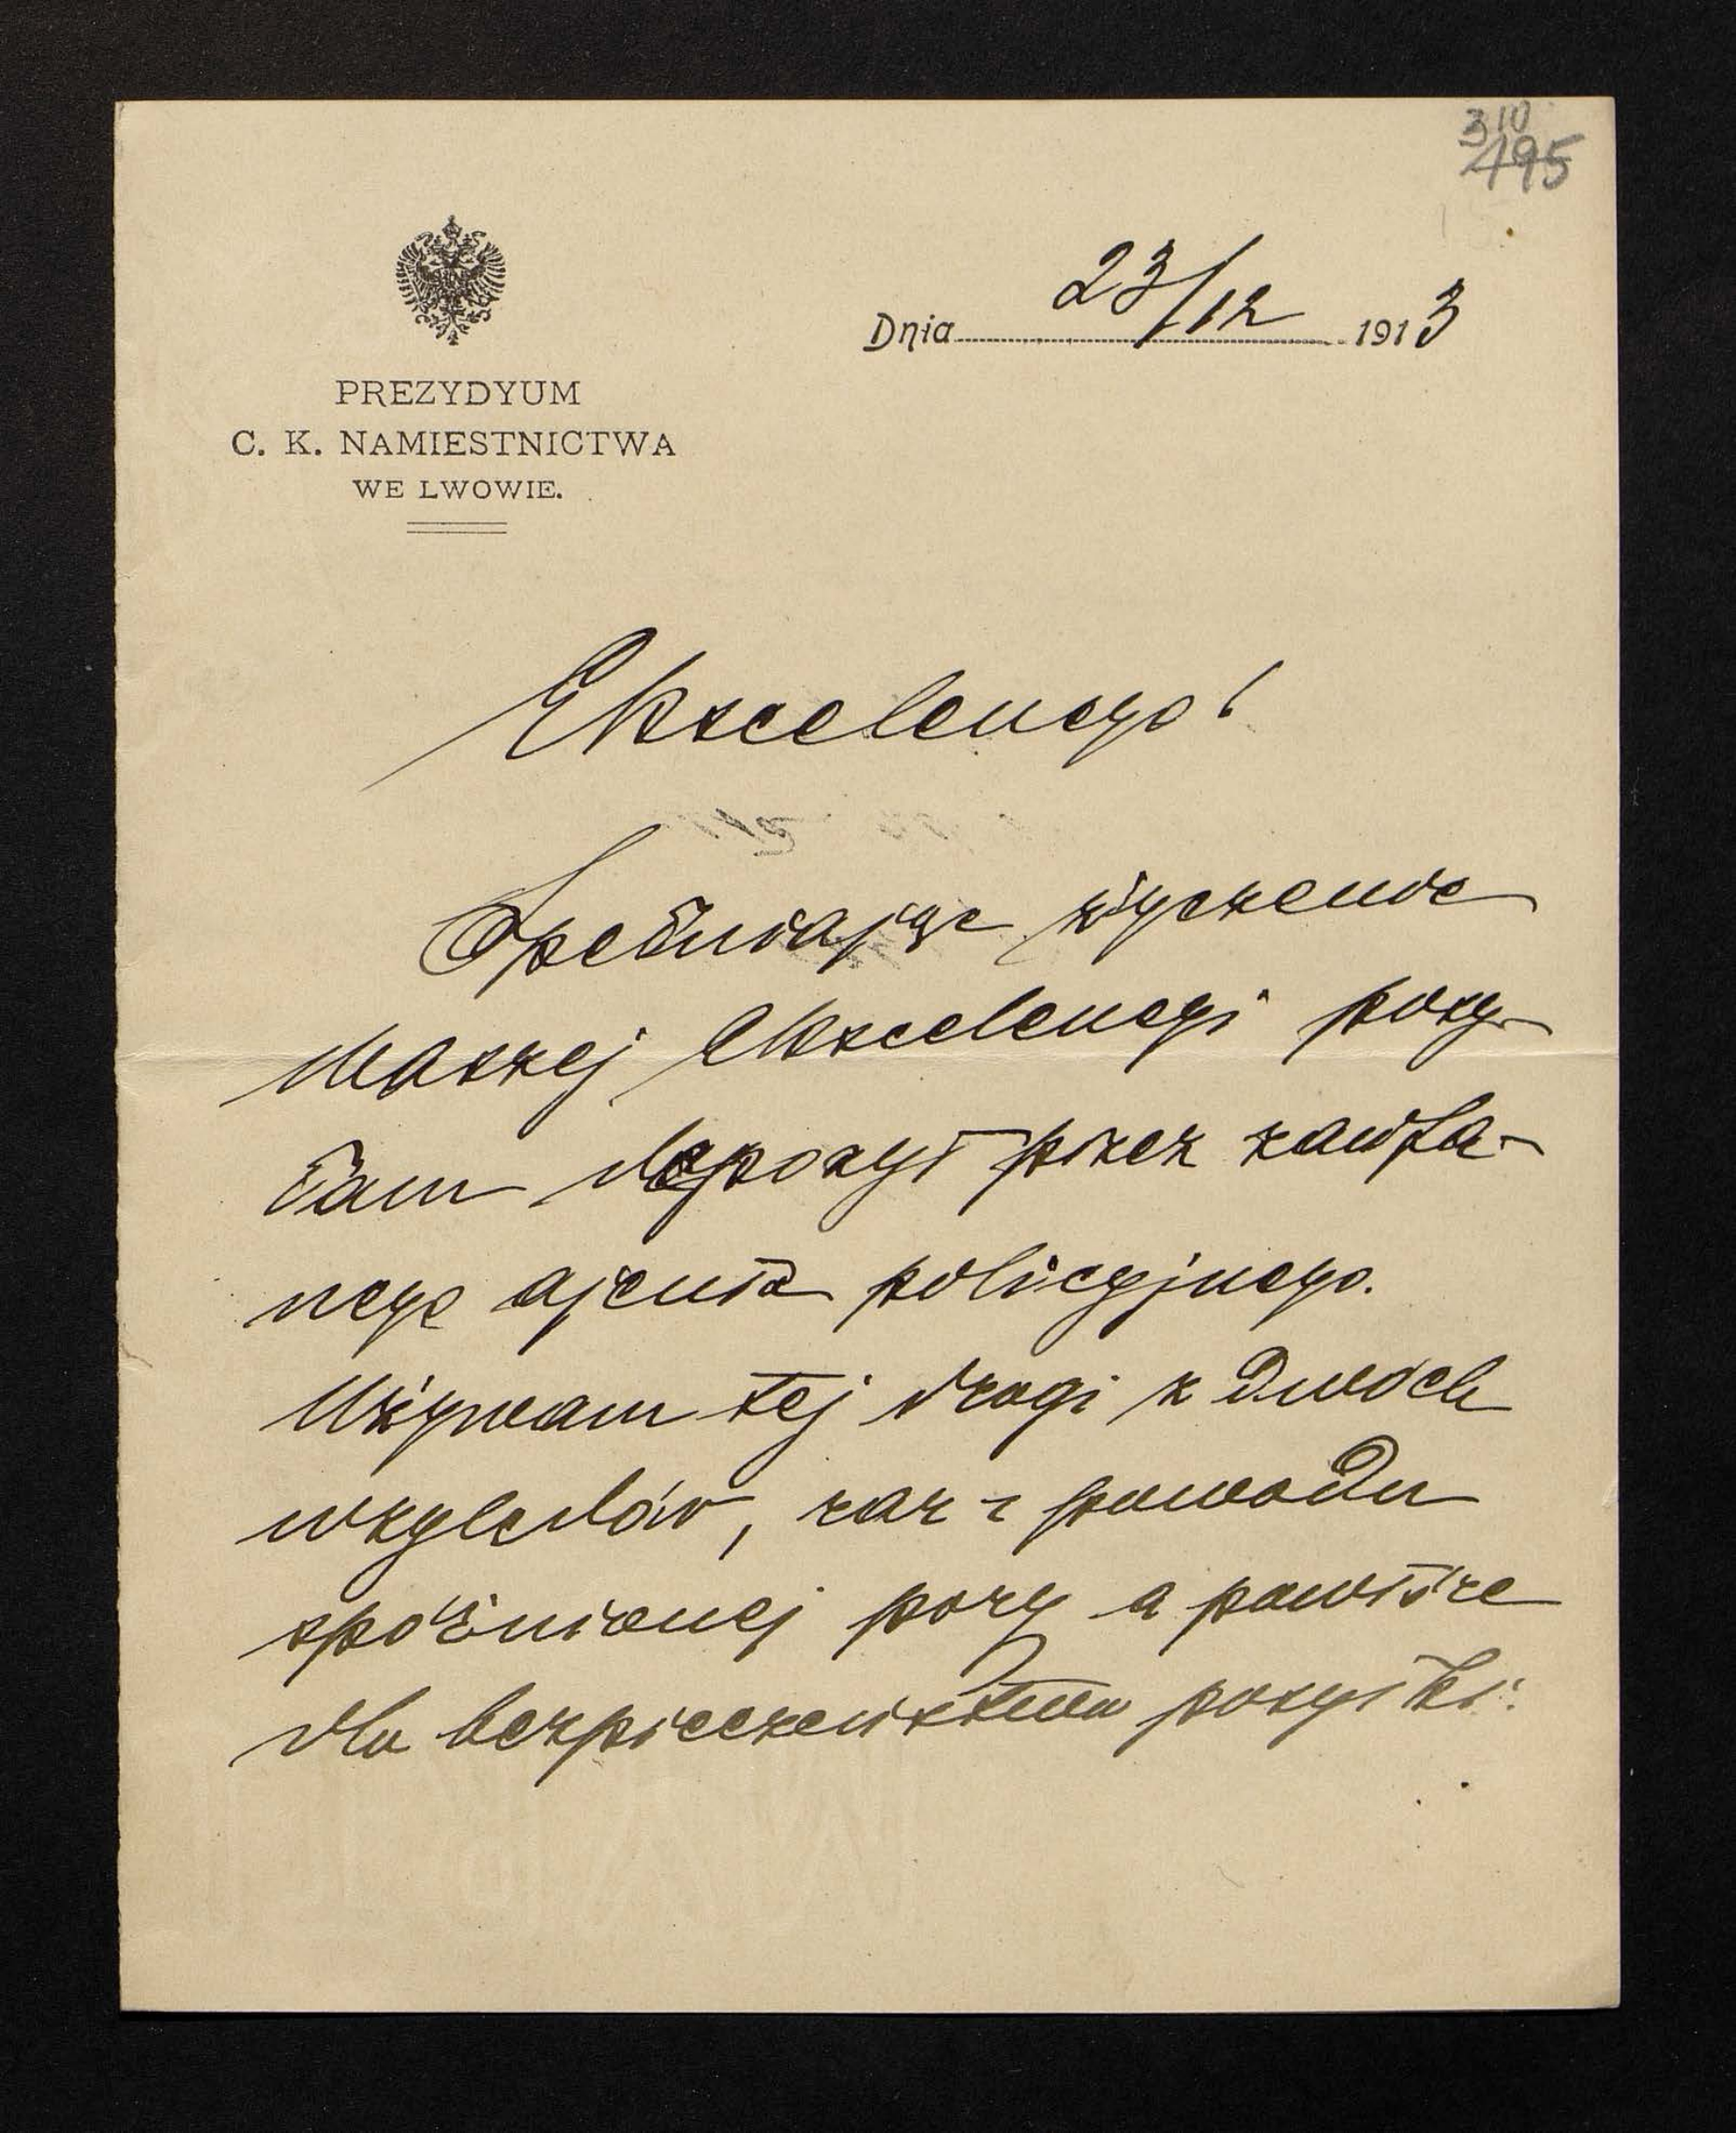 310
495
Dnia 23/12 1913
PREZYDYUM
C. K. NAMIESTNICTWA
WE LWOWIE.
Ekscelencyo!
Spełniając życzenie
Waszej Ekscelencyi posy-
łam depozyt przez zaufa-
nego ajenta policyjnego.
Używam tej drogi z dwóch
względów, raz z powodu
spóźnionej pory a powtóre
dla bezpieczeństwa posyłki.